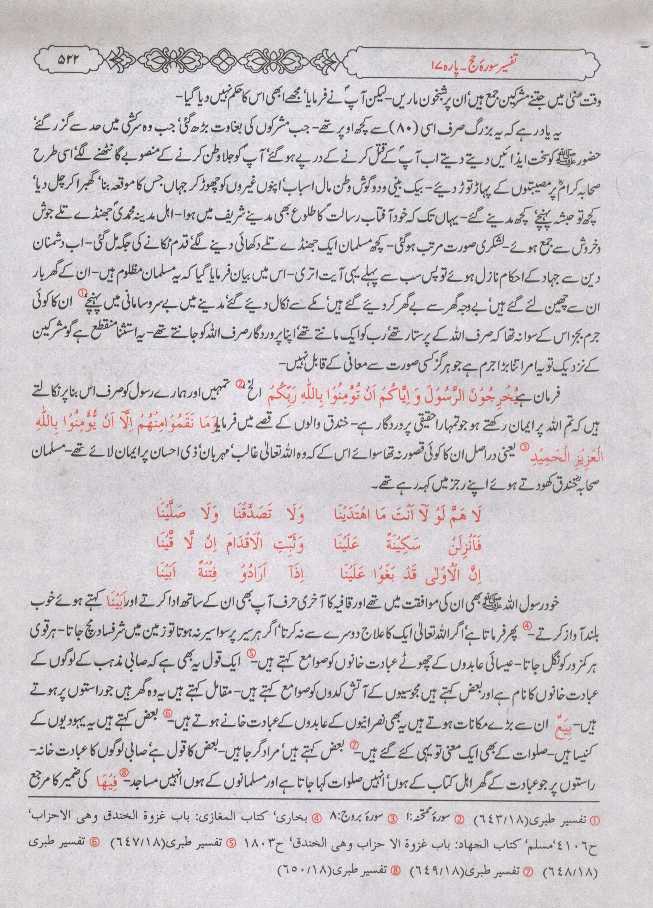 تفسیر سورۂ حج۔ پارہ ۱۷
۵۲۲
وقت منیٰ میں جتنے مشرکین جمع ہیں' ان پر شبخون ماریں۔ لیکن آپؐ نے فرمایا' مجھے ابھی اس کا حکم نہیں دیا گیا۔
یہ یاد رہے کہ یہ بزرگ صرف اسی (۸۰) سے کچھ اوپر تھے۔ جب مشرکوں کی بغاوت بڑھ گئی' جب وہ سرکشی میں حد سے گزر گئے'
حضور ﷺ کو سخت ایذائیں دیتے دیتے اب آپؐ کے قتل کرنے کے درپے ہو گئے' آپؐ کو جلا وطن کرنے کے منصوبے گانٹھنے لگے' اسی طرح
صحابہ کرامؓ پر مصیبتوں کے پہاڑ توڑ دیئے۔ بیک بینی و دو گوش وطن مال اسباب' اپنوں غیروں کو چھوڑ کر جہاں جس کا موقعہ بنا' گھبرا کر چل دیا'
کچھ تو حبشہ پہنچے' کچھ مدینے گئے۔ یہاں تک کہ خود آفتاب رسالتؐ کا طلوع بھی مدینے شریف میں ہوا۔ اہل مدینہ محمدیؐ جھنڈے تلے جوش
و خروش سے جمع ہوئے۔ لشکری صورت مرتب ہو گئی۔ کچھ مسلمان ایک جھنڈے تلے دکھائی دینے لگے' قدم ٹکانے کی جگہ مل گئی۔ اب دشمنان
دین سے جہاد کے احکام نازل ہوئے تو پس سب سے پہلے یہی آیت اتری۔ اس میں بیان فرمایا گیا کہ یہ مسلمان مظلوم ہیں۔ ان کے گھر بار
ان سے چھین لئے گئے ہیں' بے وجہ گھر سے بے گھر کر دیئے گئے ہیں' مکے سے نکال دیئے گئے' مدینے میں بے سر و سامانی میں پہنچے ① ان کا کوئی
جرم بجز اس کے سوا نہ تھا کہ صرف اللہ کے پرستار تھے' رب کو ایک مانتے تھے' اپنا پروردگار صرف اللہ کو جانتے تھے۔ یہ استثنا منقطع ہے گو مشرکین
کے نزدیک تو یہ امر اتنا بڑا جرم ہے جو ہرگز کسی صورت سے معافی کے قابل نہیں۔
فرمان ہے يُخْرِجُوْنَ الرَّسُوْلَ وَ اِيَّاكُمْ اَنْ تُوْمِنُوْا بِاللّٰهِ رَبِّكُمْ الخ ② تمہیں اور ہمارے رسول کو صرف اس بنا پر نکالتے
ہیں کہ تم اللہ پر ایمان رکھتے ہو جو تمہارا حقیقی پروردگار ہے۔ خندق والوں کے قصے میں فرمایا وَمَا نَقَمُوْا مِنْهُمْ اِلَّا اَنْ يُّوْمِنُوْا بِاللّٰهِ
الْعَزِيْزِ الْحَمِيْدِ ③ یعنی دراصل ان کا کوئی قصور نہ تھا سوائے اس کے کہ وہ اللہ تعالیٰ غالب' مہربان' ذی احسان پر ایمان لائے تھے۔ مسلمان
صحابہؓ خندق کھودتے ہوئے اپنے رجز میں کہہ رہے تھے۔
لَا هُمَّ لَوْ لَا اَنْتَ مَا اهْتَدَيْنَا وَلَا تَصَدَّقْنَا وَلَا صَلَّيْنَا
فَاَنْزِلَنْ سَكِيْنَةً عَلَيْنَا وَثَبِّتِ الْاَقْدَامَ اِنْ لَّا قَيْنَا
اِنَّ الْاُوْلٰى قَدْ بَغَوْا عَلَيْنَا اِذَا اَرَادُوْ فِتْنَةً اَبَيْنَا
خود رسول اللہ ﷺ بھی ان کی موافقت میں تھے اور قافیہ کا آخری حرف آپ بھی ان کے ساتھ ادا کرتے اور اَبَيْنَا کہتے ہوئے خوب
بلند آواز کرتے۔ ④ پھر فرماتا ہے' اگر اللہ تعالیٰ ایک کا علاج دوسرے سے نہ کرتا' اگر ہر سیر پر سوا سیر نہ ہوتا تو زمین میں شر فساد مچ جاتا۔ ہر قوی
ہر کمزور کو نگل جاتا۔ عیسائی عابدوں کے چھوٹے عبادت خانوں کو صوامع کہتے ہیں۔ ⑤ ایک قول یہ بھی ہے کہ صابی مذہب کے لوگوں کے
عبادت خانوں کا نام ہے اور بعض کہتے ہیں مجوسیوں کے آتش کدوں کو صوامع کہتے ہیں۔ مقاتل کہتے ہیں یہ وہ گھر ہیں جو راستوں پر ہوتے
ہیں۔ بِيَعٌ ان سے بڑے مکانات ہوتے ہیں یہ بھی نصرانیوں کے عابدوں کے عبادت خانے ہوتے ہیں۔ ⑥ بعض کہتے ہیں یہ یہودیوں کے
کنیسا ہیں۔ صلوات کے بھی ایک معنی تو یہی کئے گئے ہیں۔ ⑦ بعض کہتے ہیں' مراد گرجا ہیں۔ بعض کا قول ہے' صابی لوگوں کا عبادت خانہ۔
راستوں پر جو عبادت کے گھر اہل کتاب کے ہوں' انہیں صلوات کہا جاتا ہے اور مسلمانوں کے ہوں انہیں مساجد۔ ⑧ فِيْهَا کی ضمیر کا مرجع
① تفسیر طبری (۶۴۳/۱۸) ② سورۂ ممتحنہ: ۱ ③ سورۂ بروج: ۸ ④ بخاری' کتاب المغازی: باب غزوة الخندق وهى الاحزاب'
ح۴۱۰۶' مسلم' كتاب الجهاد: باب غزوة الا حزاب وهى الخندق' ح۱۸۰۳ ⑤ تفسیر طبری (۶۴۷/۱۸) ⑥ تفسیر طبری
(۶۴۸/۱۸) ⑦ تفسیر طبری (۶۴۹/۱۸) ⑧ تفسیر طبری (۶۵۰/۱۸)